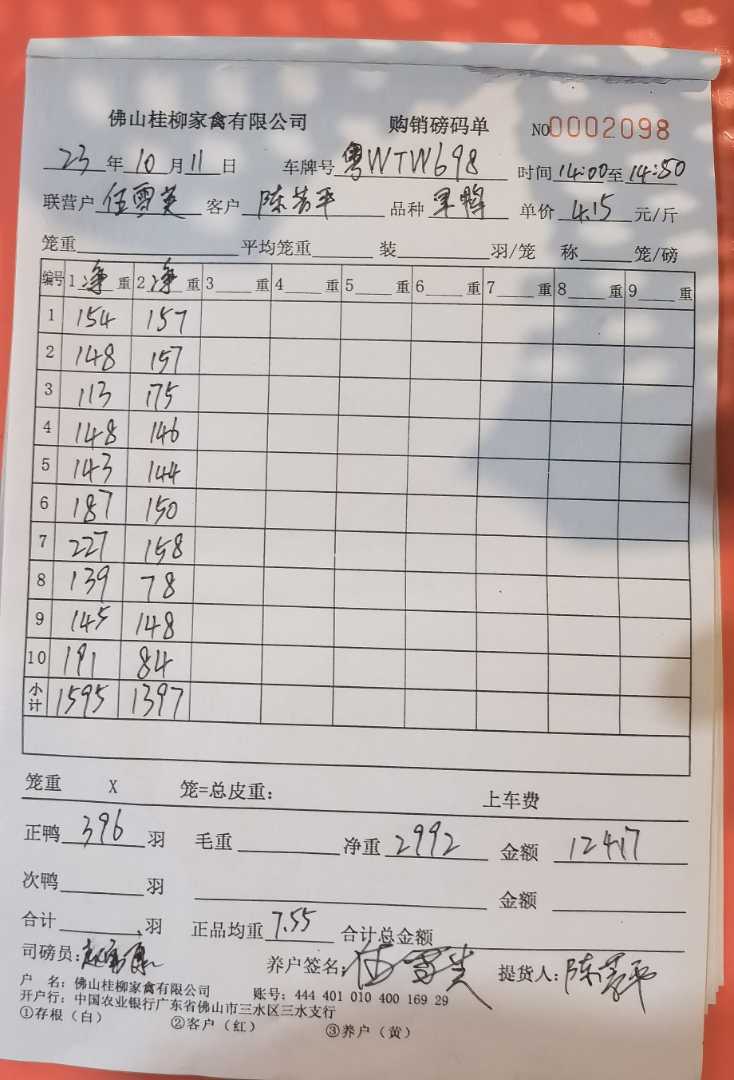 佛山桂柳家禽有限公司 购销磅码单 NO0002098
23年10月11日 车牌号粤WTW698 时间14:00至14:50
联营户伍雪芙 客户 陈芳平 品种 单价 4.15 元/斤
笼重 平均笼重 装 羽/笼 称 笼/磅
编号 1净重 2净重 3 重 4 重 5 重 6 重 7 重 8 重 9 重
1 154 157
2 148 157
3 113 175
4 148 146
5 143 144
6 187 150
7 227 158
8 139 78
9 145 148
10 191 84
小计 1595 1397
笼重 X 笼=总皮重: 上车费
正鸭 396 羽 毛重 净重 2992 金额 12417
次鸭 羽 金额
合计 羽 正品均重 7.55 合计总金额
司磅员: 养户签名: 提货人:
户 名: 佛山桂柳家禽有限公司 账号: 444 401 010 400 169 29
开户行: 中国农业银行广东省佛山市三水区三水支行
①存根(白) ②客户(红) ③养户(黄)